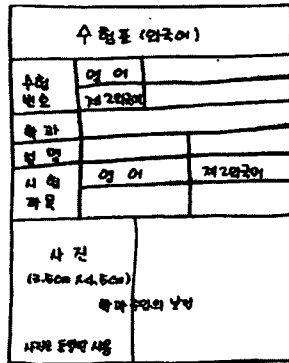 수험표 (외국어)
수험 번호
영 어
제2외국어
학 과
성 명
시 험 과목
영 어
제2외국어
사 진
(3.5cm x 4.5cm)
학과주임의 날인